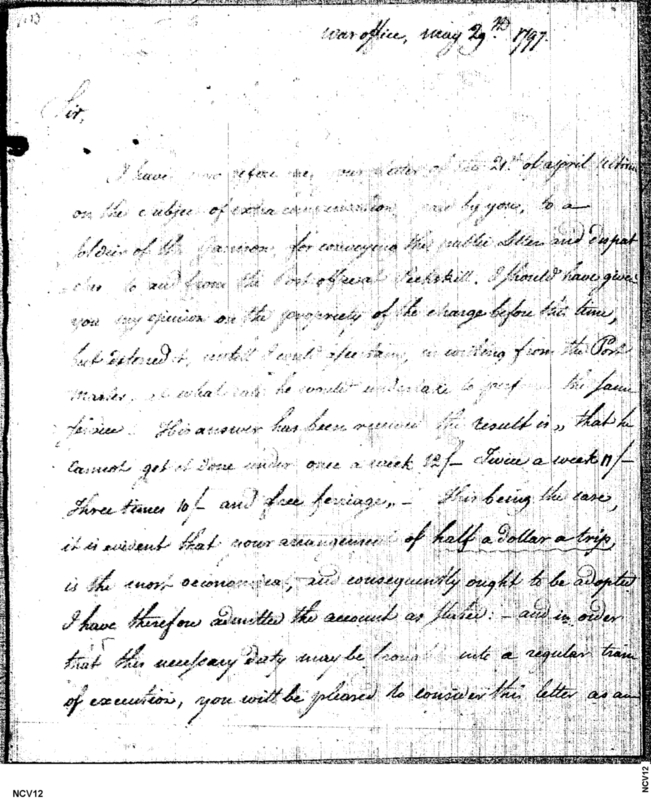 War office, May 29th 1797.
Sir,
I have now before me, your letter of the 21st of april
on the subject of extra compensation, by you, to a
soldier of the Garrison, for conveying the public letters and dispat
ches to and from the Post office at Peekskill. I should have given
you my opinion on the propriety of the charge before this time,
but defered it, untill I could ascertain, in writing from the Post
Master, at what rate he would undertake to perform the same
service. His answer has been received the result is, "that he
cannot get it done under once a week 12/- Twice a week 11/-
Three times 10/- and free ferriage," - This being the case,
it is evident that your arrangement of half a dollar a trip,
is the most oeconomical, and consequently ought to be adopted
I have therefore admitted the account as stated: - and in order
that this necessary duty may be brought into a regular train
of execution, you will be pleased to consider this letter as an
NCV12
NCV12